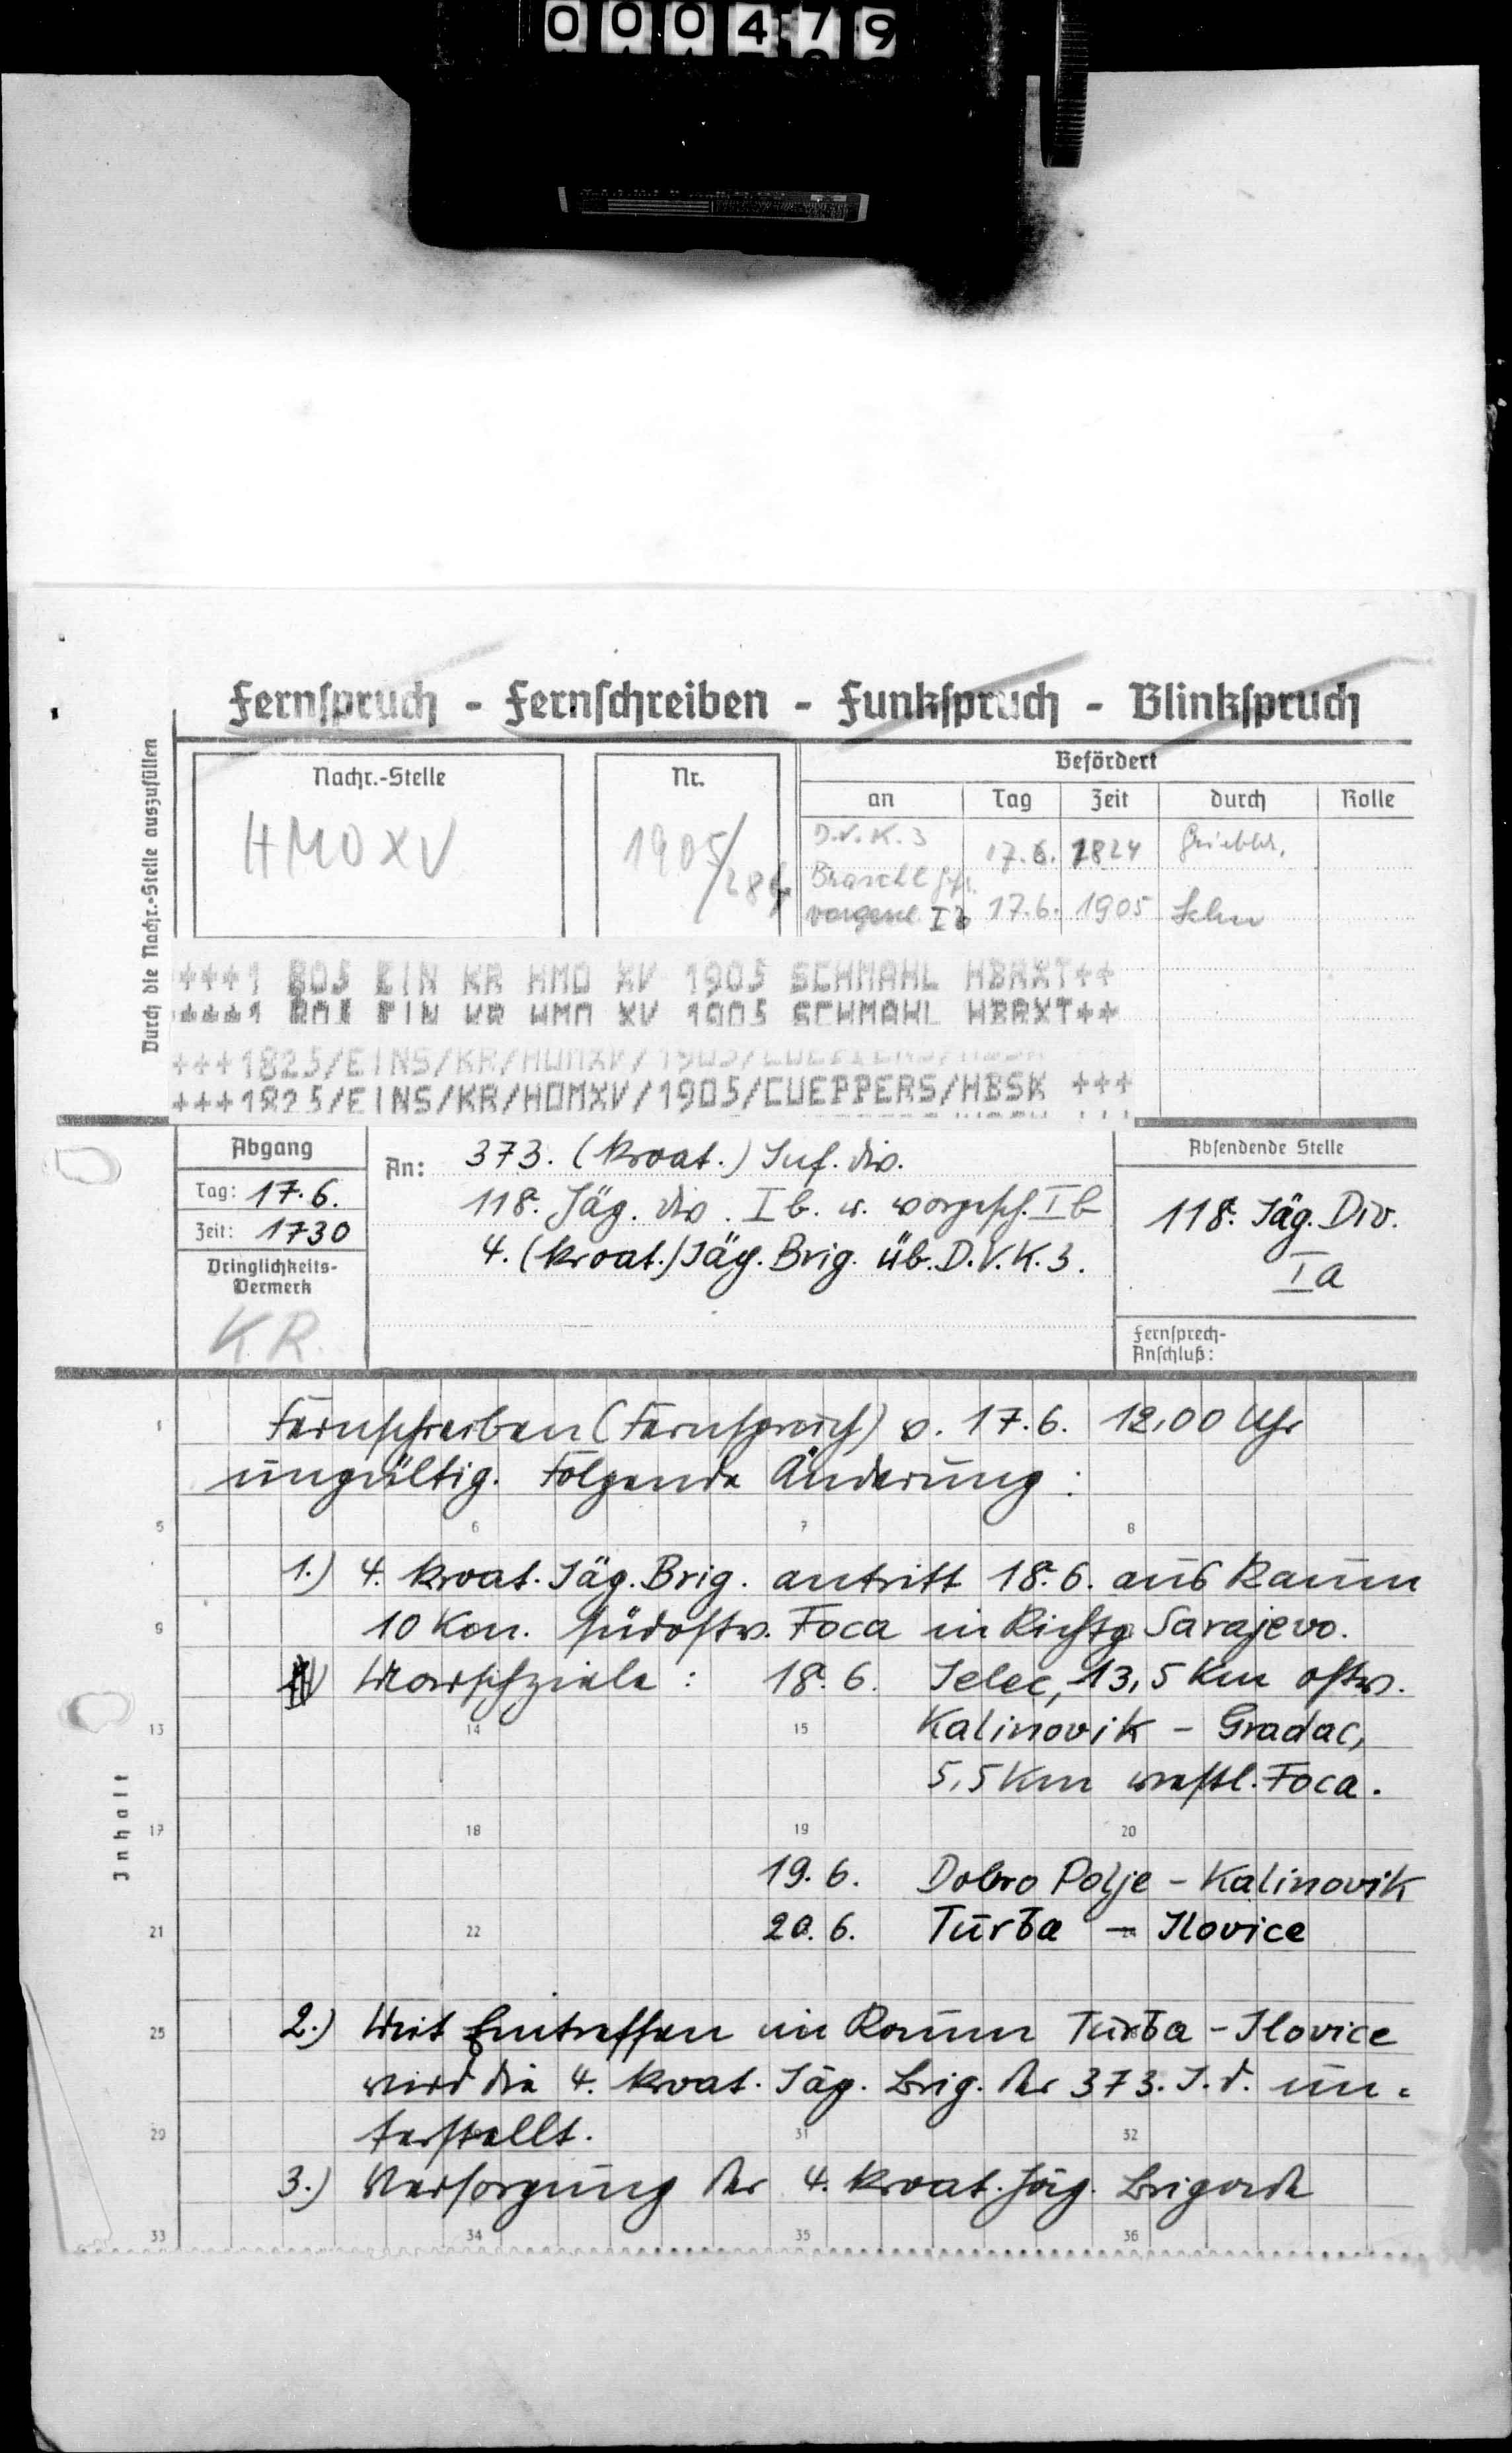 000479
Fernspruch - Fernschreiben - Funkspruch - Blinkspruch
Durch die Nachr.-Stelle auszufüllen
Nachr.-Stelle
HMOXV
Nr.
1905/
Befördert
an Tag Zeit durch Rolle
D.V.K.3 17.6. 1824
Ib 17.6. 1905
+++1 805 EIN KR HMO XV 1905 SCHMAHL HBRXT++
++++1 805 EIN KR HMO XV 1905 SCHMAHL HBRXT++
+++1825/EINS/KR/HOMXV/1905/CUEPPERS/HBSK
+++1825/EINS/KR/HOMXV/1905/CUEPPERS/HBSK +++
Abgang
Tag: 17.6.
Zeit: 1730
Dringlichkeits-
Vermerk
KR.
An: 373. (kroat.) Inf. div.
118. Jäg. div. Ib. u. vorgesch. Ib
4. (kroat.) Jäg. Brig. üb. D.V.K.3.
Absendende Stelle
118. Jäg. Div.
Ia
Fernsprech-
Anschluß:
Inhalt
1 Fernschreiben (Fernspruch) v. 17.6. 12,00 Uhr
ungültig. Folgende Änderung:
5 6 7 8
1.) 4. kroat. Jäg. Brig. antritt 18.6. aus Raum
9 10 Km. südostw. Foca in Richtg Sarajevo.
Marschziele: 18.6. Jelec, 13,5 Km ostw.
13 14 15 Kalinovik - Gradac,
5,5 Km westl. Foca.
17 18 19 20
19.6. Dobro Polje - Kalinovik
21 22 20.6. Turba - Ilovice
25 2.) Mit Eintreffen im Raum Turba - Ilovice
wird die 4. kroat. Jäg. Brig. der 373. I.d. un-
29 terstellt. 31 32
3.) Versorgung der 4. kroat. Jäg. Brigade
33 34 35 36